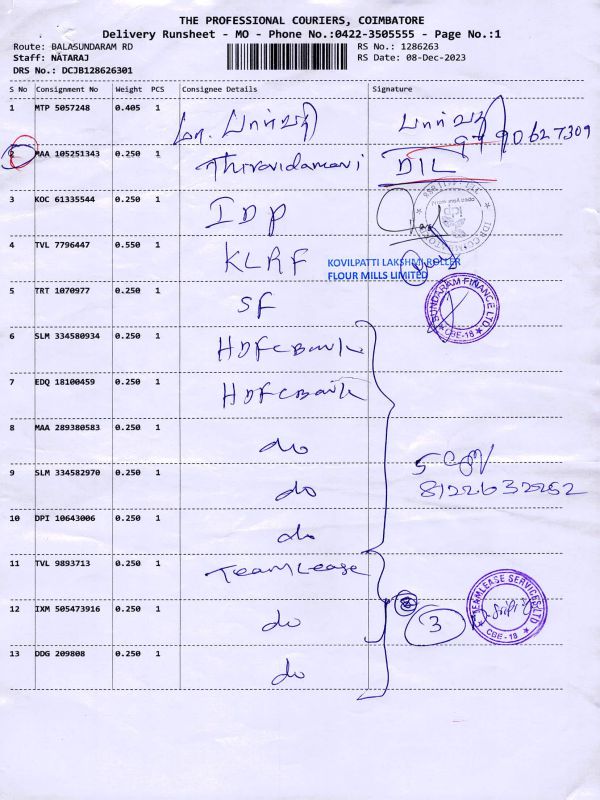 THE PROFESSIONAL COURIERS, COIMBATORE
Delivery Runsheet - MO - Phone No.:0422-3505555 - Page No.:1
Route: BALASUNDARAM RD RS No.: 1286263
Staff: NATARAJ RS Date: 08-Dec-2023
DRS No.: DCJB128626301
S No Consignment No Weight PCS Consignee Details Signature
1 MTP 5057248 0.405 1
2 MAA 105251343 0.250 1 Thiravidamani DIL
3 KOC 61335544 0.250 1 IDP
4 TVL 7796447 0.550 1 KLRF KOVILPATTI LAKSHMI ROLLER
FLOUR MILLS LIMITED
5 TRT 1070977 0.250 1 SF SUNDARAM FINANCE LTD CBE-18
6 SLM 334580934 0.250 1 HDFC Bank
7 EDQ 18100459 0.250 1 HDFC Bank
8 MAA 289380583 0.250 1 do
9 SLM 334582970 0.250 1 do 5
8122632252
10 DPI 10643006 0.250 1 do
11 TVL 9893713 0.250 1 TeamLease
12 IXM 505473916 0.250 1 do 3 TEAMLEASE SERVICES LTD CBE-18
13 DDG 209808 0.250 1 do